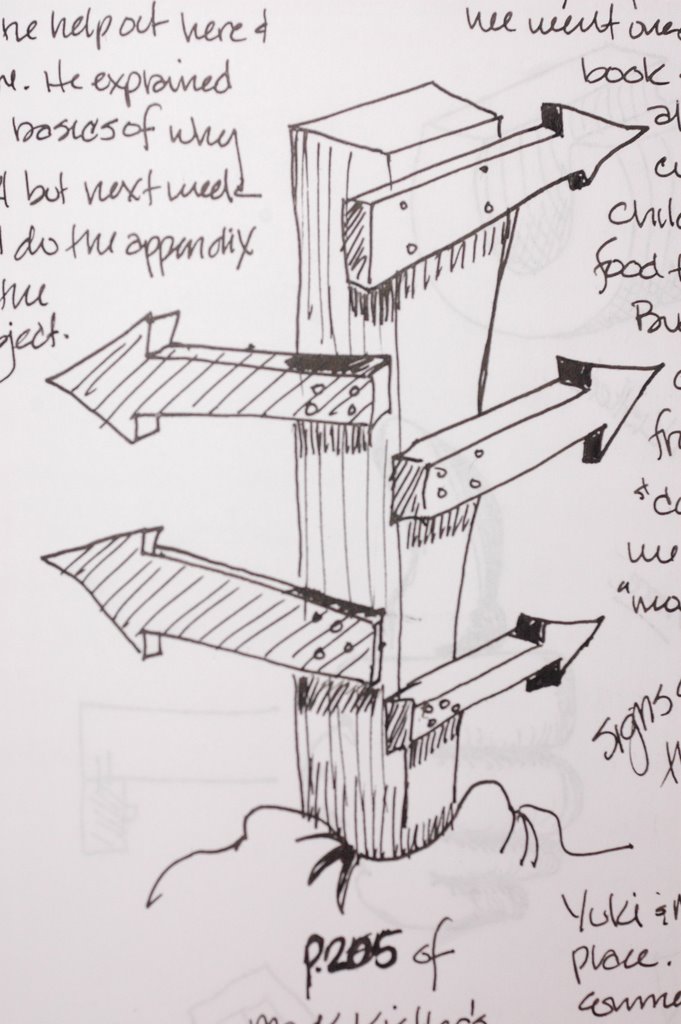 help out here &
He explained
basics of why
but next week
do the appendix
the
ject.
book
al
child
food t
Bu
fr
"co
me
"mo
signs
th
p. 205 of
Yuki &
place.
comme